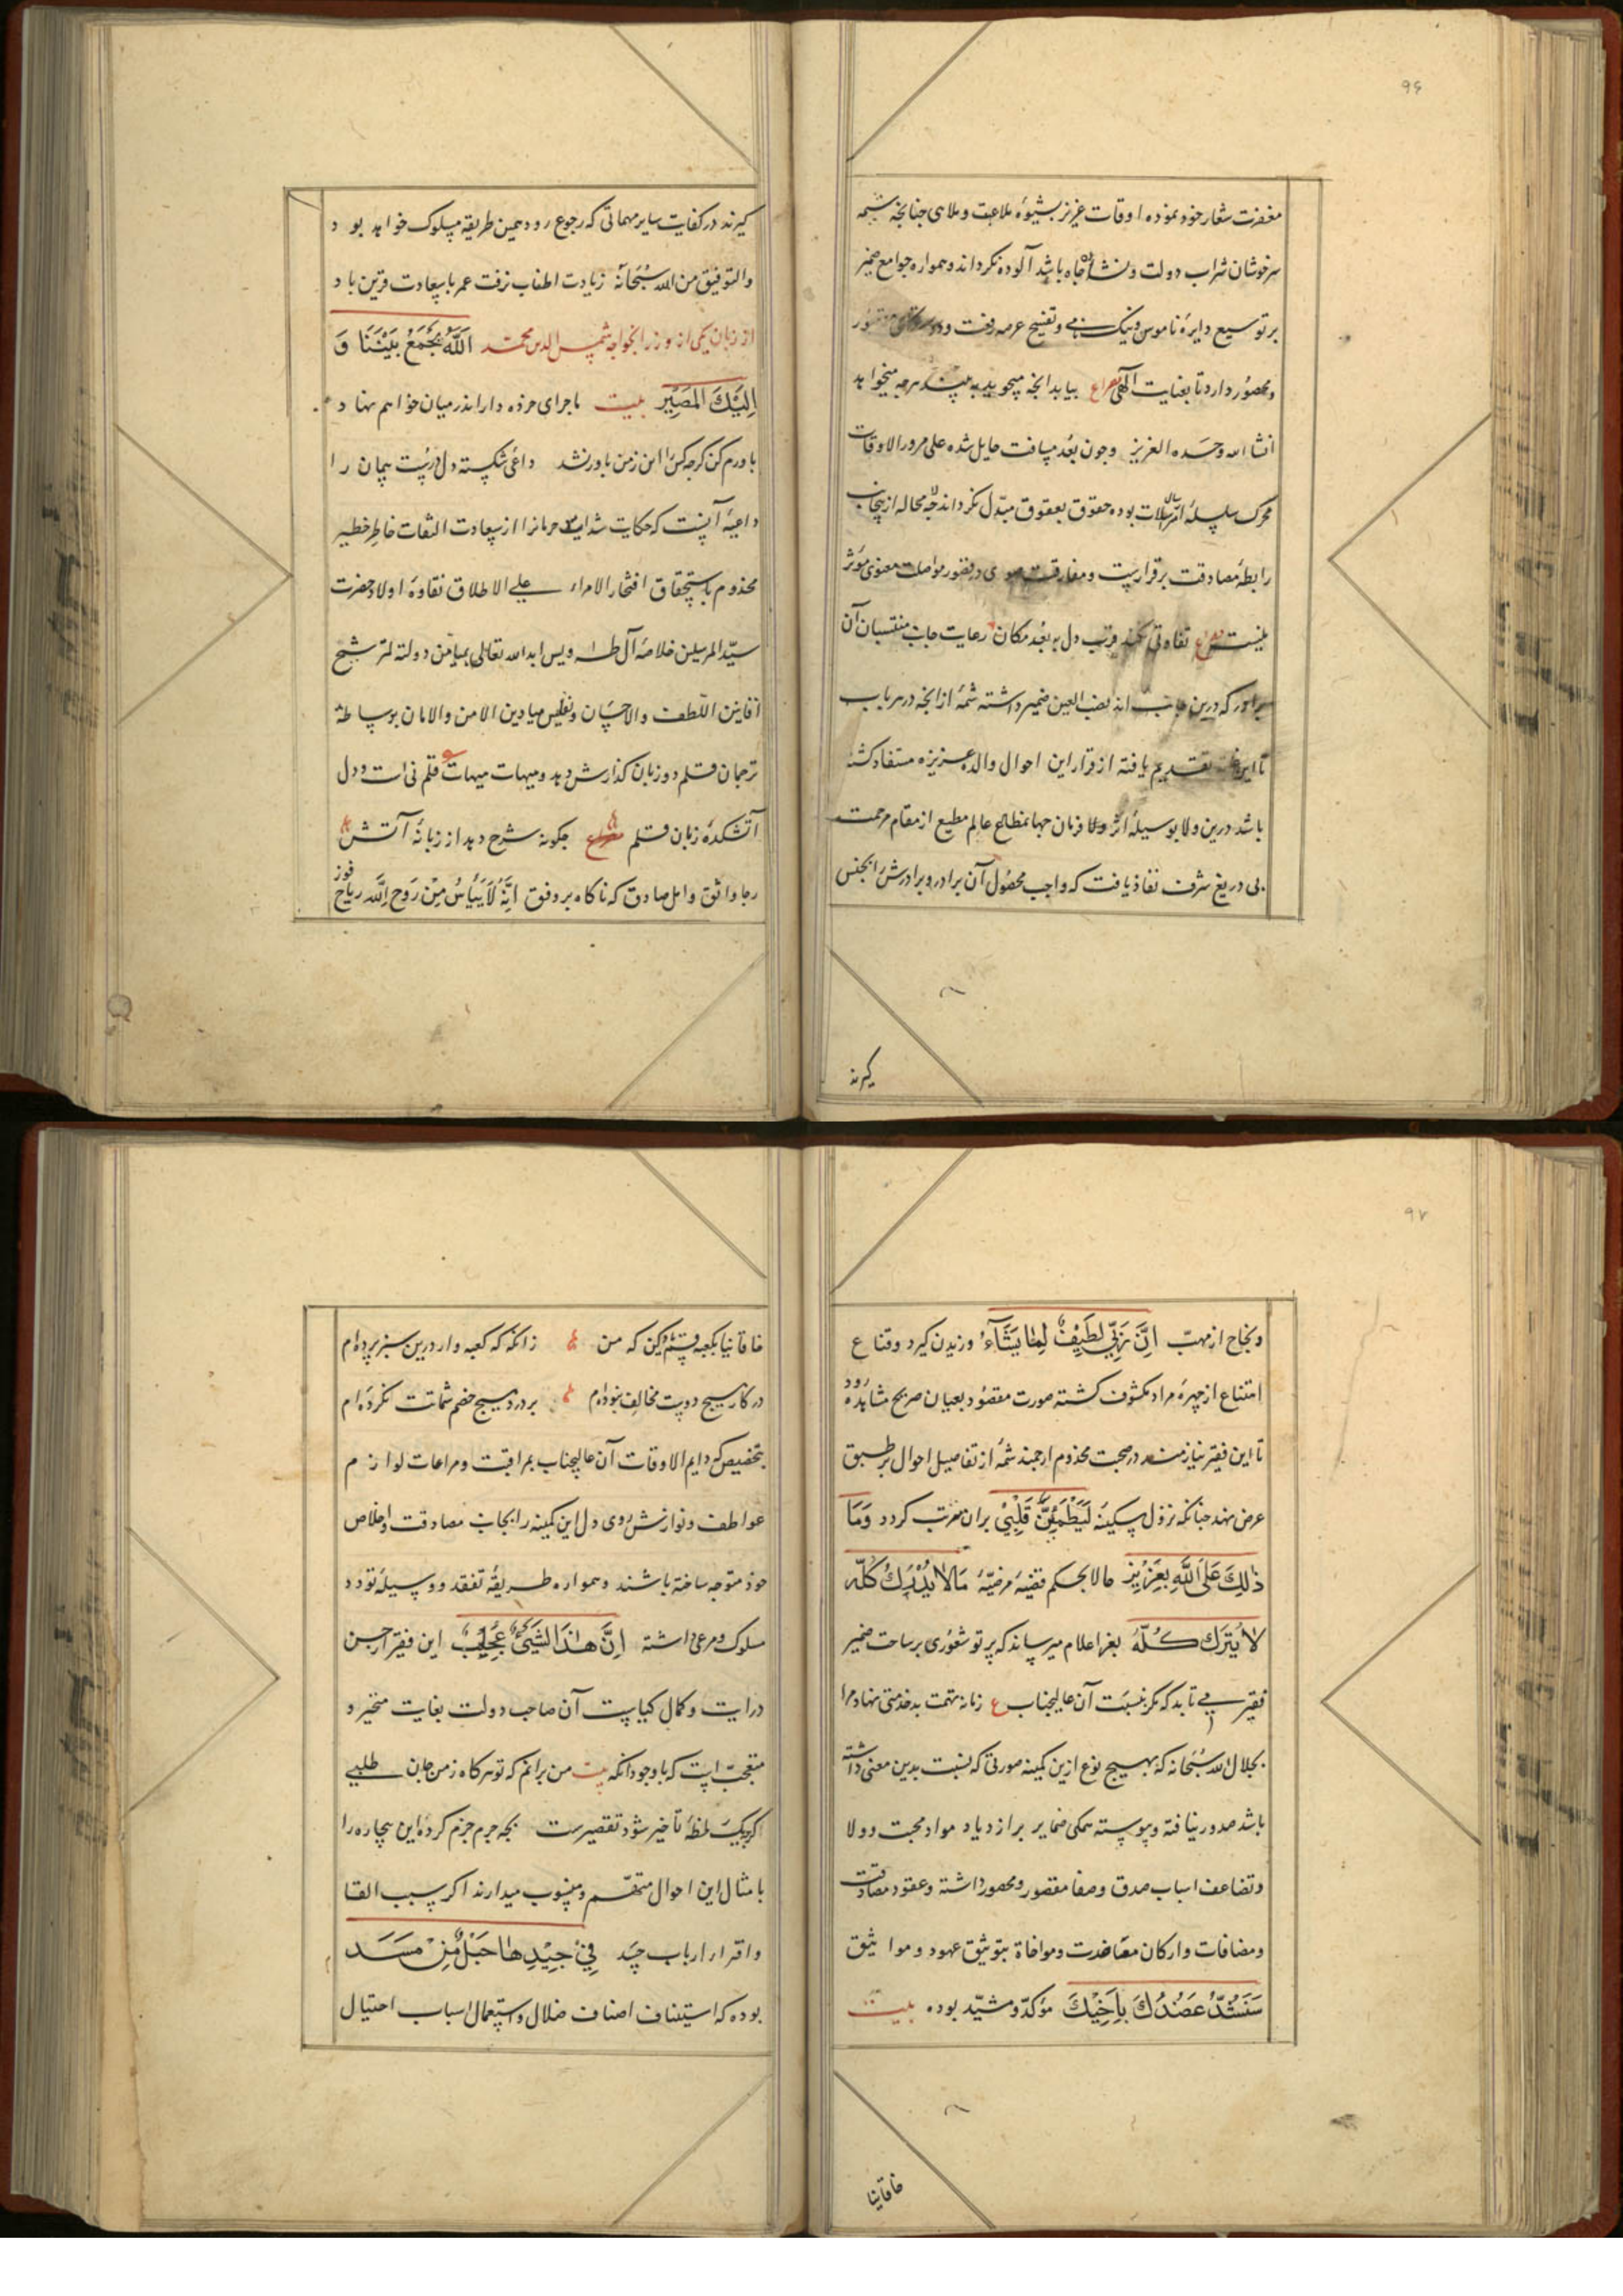 ۹۶
مغفرت شعار خود نموده اوقات عزیز بشیوه ملاعبت و ملاهی چنانچه شیمه
سرخوشان شراب دولت و نشاء جاه باشد آلوده نکرداند و همواره جوامع ضمیر
بر توسیع دایرهٔ ناموس و نیک نامی و تفسیح عرصه رفعت و
و محصور دارد تا بعنایت الهی مصراع بیابد انچه میجوید به بیند هرچه میخواهد
انشا الله وحده العزیز وچون بعد مسافت حایل شده علی مرور الاوقات
محرک سلسلهٔ مراسلات بوده حقوق بعقوق مبدّل نکرداند چه لا محاله ازینجانب
رابطهٔ مصادقت برقرارست ومفارقت صوری در قصور مواصلت معنوی مؤثر
نیست مصرع تفاوتی نکند قرب دل به بعد مکان رعایت جانب منتسبان آن
برادر که درین جانب اند نصب العین ضمیر داشته شمهٔ از انچه در هر باب
تا این غایت تقدیم یافته از قرار این احوال والده عزیزه مستفاد کشته
باشد درین ولا بوسیلهٔ اثر ولا فرمان جهانمطاع عالم مطیع از مقام مرحمت
بی دریغ شرف نفاذ یافت که واجب محصول آن برادر و برادرش را بجنس
کیرند
کیرند در کفایت سایر مهماتی که رجوع رود همین طریقه مسلوک خواهد بود
والتوفیق من الله سُبْحَانَهُ زیادت اطناب نرفت عمر با سعادت قرین باد
از زبان یکی از وزرا بخواجه شمس الدین محمّد اَللّٰهُ یَجْمَعُ بَیْنَنَا وَ
اِلَیْكَ المَصِیْر بیت ماجرای مرده دارا بدر میان خواهم نهاد
باورم کن کرچه کس را این ز من باور نشد داعی شکسته دل درست پیمان را
داعیه آنست که حکایت شداید حرمانرا از سعادت التفات خاطر خطیر
مخذوم باستحقاق افتخار الامراء علی الاطلاق نقاوهٔ اولاد حضرت
سیّد المرسلین خلاصهٔ آل طٰه ویس ابد الله تعالی بمیامن دولته لترشیح
افانین اللّطف والاحسان و میادین الامن والامان بوساطهٔ
ترجمان قلم دو زبان کذارش دهد و هیهات هیهات قلم نی است و دل
آتشکده زبان قلم مصراع چکونه شرح دهد از زبانهٔ آتش
رجا واثق و امل صادق که ناکاه بر وفق اِنَّهُ لَا یَیْأَسُ مِنْ رَوْحِ اللّٰه ریاح فوز
۹۷
و نجاح از مهبّ اِنَّ رَبِّی لَطِیْفٌ لِمٰا یَشَآءُ وزیدن کیرد و قناع
امتناع از چهرهٔ مراد مکشوف کشته صورت مقصود بعیان صریح مشاهده رود
تا این فقیر نیازمند در صحبت مخذوم ارجمند شمهٔ از تفاصیل احوال بر طبق
عرض نهد چنانکه نزول سکینهٔ لَیَطْمَئِنَّ قَلْبِیْ بران مترتب کردد وَمَا
ذٰلِكَ عَلَی اللّٰهِ بِعَزِیْزٍ حالا بحکم قضیهٔ مرضیّهٔ مَا لا یُدْرَكُ کُلّهُ
لاٰ یُتْرَك کُلّهُ بعز اعلام میرساند که پرتو شعوری بر ساحت ضمیر
فقیر می تابد که مکر بنسبت آن عالیجناب ع زمانه تهمت بدخدمتی نهاد مرا
بجلال الله سُبْحَانه که بهیچ نوع ازین کمینه صورتی که نسبت بدین معنی داشته
باشد صدور نیافته و پیوسته همکی ضمایر بر ازدیاد مواد محبت و ولا
و تضاعف اسباب صدق و صفا مقصور و محصور داشته و عقود مصادقت
و مصافات و ارکان معاضدت و موافاة بتوثیق عهود و مواثیق
سَنَشُدُّ عَضُدُكَ بِاَخِیْكَ مؤکّد و مشیّد بوده بیت
خاقانیا
خاقانیا بکعبه قسم یاد کن که من زانکه که کعبه وار درین سبز پرده ام
در کار هیچ دوست مخالف نبوده ام بر درد هیچ خصم شماتت نکرده ام
بتخصیص که دایم الاوقات آن عالیجناب بمراقبت و مراعات لوازم
عواطف و نوازش روی دل این کمینه را بجانب مصادقت و اخلاص
خود متوجه ساخته باشند و همواره طریقهٔ تفقد و وسیلهٔ تودد
مسلوک و مرعی داشته اِنَّ هٰذَا لَشَیْئٌ عُجٰابٌ این فقیر از حسن
درایت و کمال کیاست آن صاحب دولت بغایت متحیر و
متعجّب است که با وجود آنکه بیت من برانم که تو هرکاه ز من جان طلبی
کر بیک لحظهٔ تأخیر شود تقصیرست بچه جرم جزم کرده این بیچاره را
بامثال این احوال متّهم و منسوب میدارند اکر سبب القا
و اقرار ارباب حسد فِیْ جِیْدِهٰا حَبْلٌ مِنْ مَسَد
بوده که استیناف اصناف ضلال و استعمال اسباب احتیال